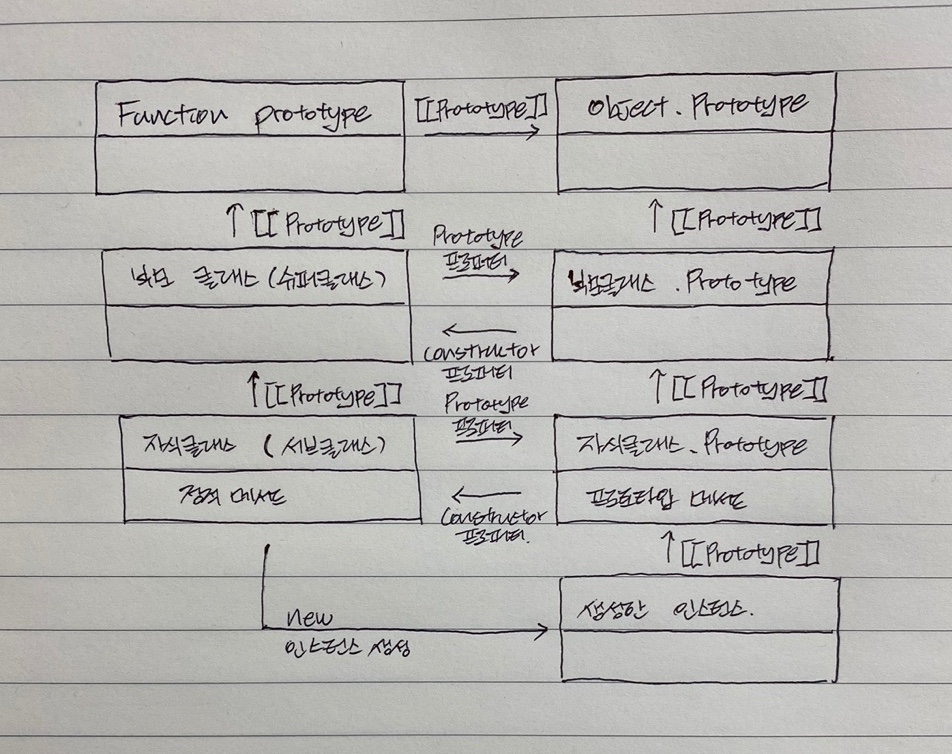 Function prototype
[[Prototype]]
Object.Prototype
↑ [[Prototype]]
↑ [[Prototype]]
부모 클래스 (슈퍼클래스)
Prototype
프로퍼티
부모클래스.Prototype
constructor
프로퍼티
↑ [[Prototype]]
↑ [[Prototype]]
자식클래스 (서브클래스)
Prototype
프로퍼티
자식클래스.Prototype
정적 메서드
constructor
프로퍼티.
프로토타입 메서드
↑ [[Prototype]]
new
인스턴스 생성
생성한 인스턴스.